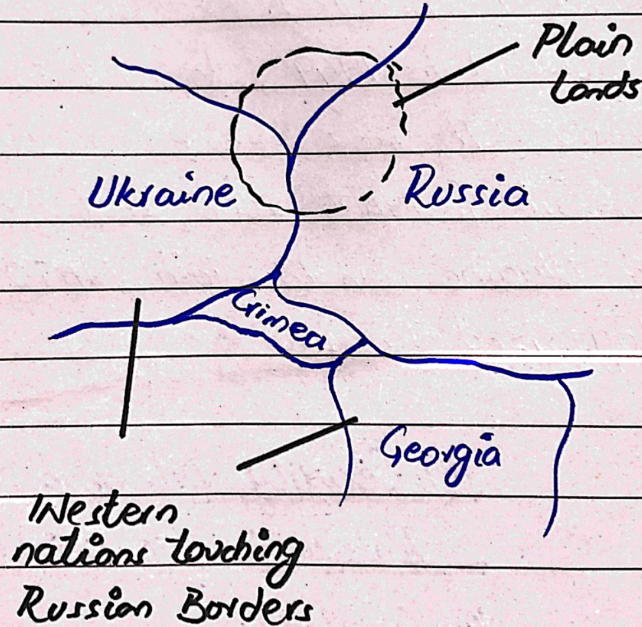 Plain
Lands
Ukraine
Russia
Crimea
Georgia
Western
nations touching
Russian Borders